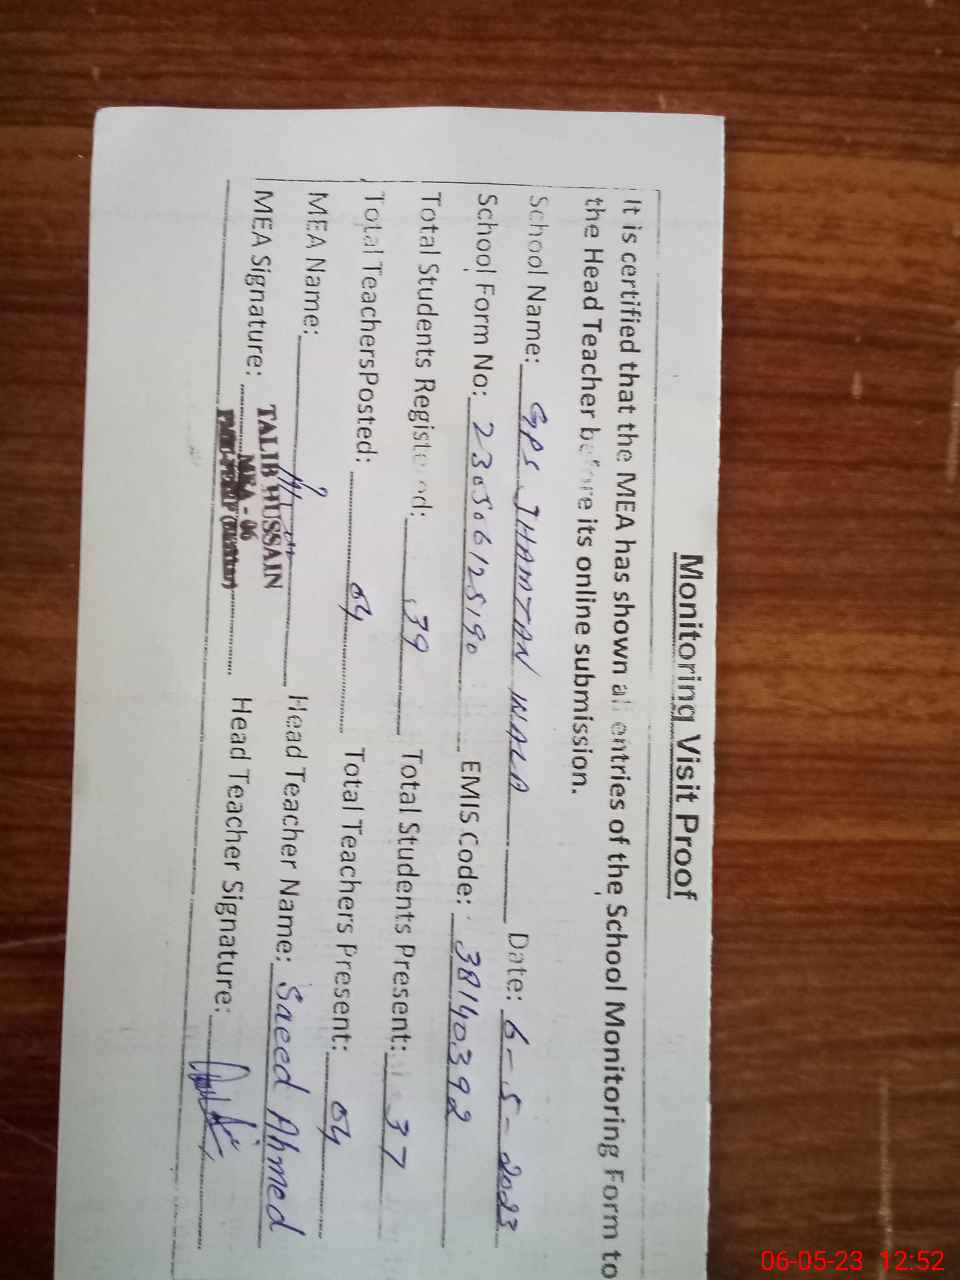 Monitoring Visit Proof
It is certified that the MEA has shown all entries of the School Monitoring Form to
the Head Teacher before its online submission.
School Name: GPS JHAMTAN WALA Date: 6-5-2023
School Form No: 230506125190 EMIS Code: 38140392
Total Students Registered: 39 Total Students Present: 37
Total TeachersPosted: 04 Total Teachers Present: 04
MEA Name: Head Teacher Name: Saeed Ahmed
MEA Signature: Head Teacher Signature:
TALIB HUSSAIN
MEA - 06
06-05-23 12:52